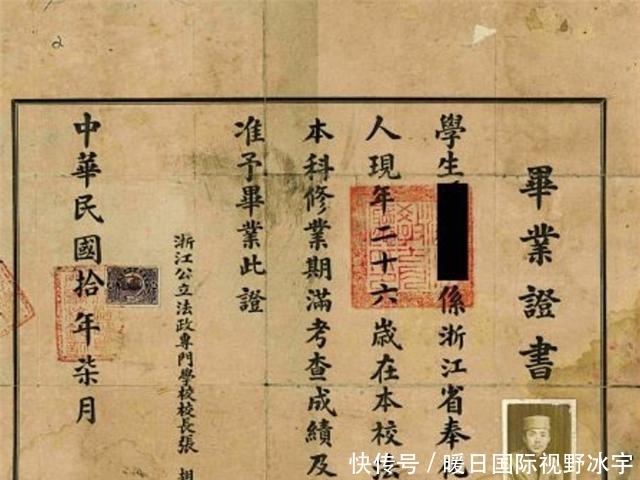 2
畢業證書
學生 係浙江省奉化
人現年二十六歲在本校法
本科修業期滿考查成績及
准予畢業此證
浙江公立法政專門學校校長張
中華民國拾年柒月
快传号 / 暖日国际视野冰宇